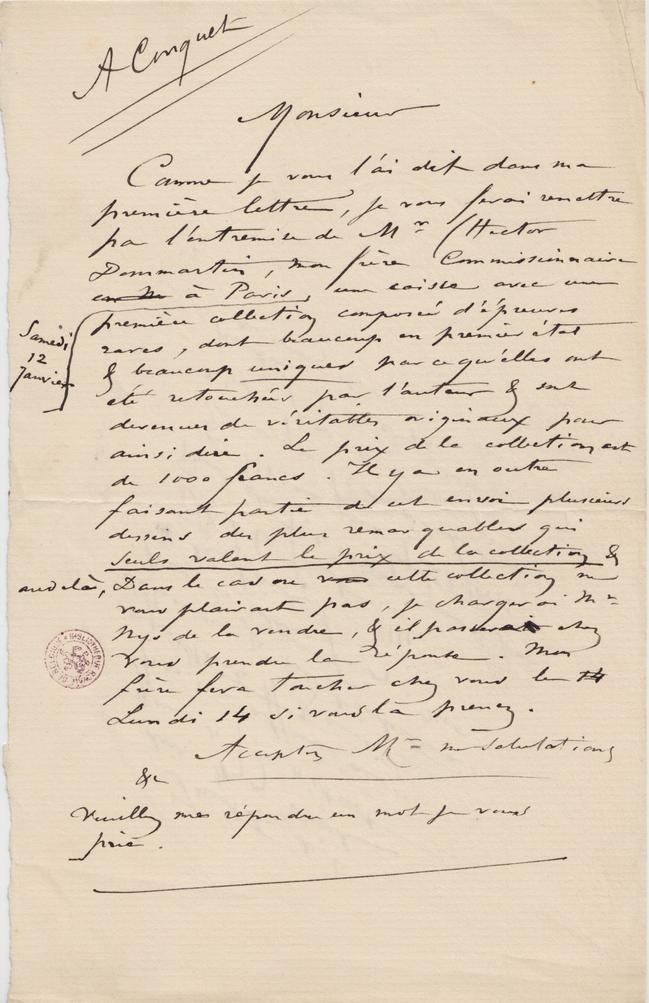 A Conquet
Monsieur
Comme je vous l'ai dit dans ma
première lettre, je vous ferai remettre
par l'entremise de Mr Hector
Dommartin, mon frère Commissionnaire
à Paris, une caisse avec une
Samedi
12
Janvier
première collection composée d'épreuves
rares, dont beaucoup en premier état
& beaucoup uniques par ce qu'elles ont
été retouchées par l'auteur & sont
devenues de véritables originaux pour
ainsi dire. Le prix de la collection est
de 1000 francs. Il y a en outre
faisant partie de cet envoi plusieurs
dessins des plus remarquables qui
seuls valent le prix de la collection &
au delà, Dans le cas où vous cette collection ne
vous plairait pas, je chargerai Mr
Nys de la vendre, & il passerait chez
vous prendre la réponse. Mon
frère fera toucher chez vous le 14
Lundi 14 si vous la prenez.
Acceptez Mr mes Salutations
&c
Veuillez me répondre un mot je vous
prie.
BIBLIOTHEQUE ROYALE DE BELGIQUE